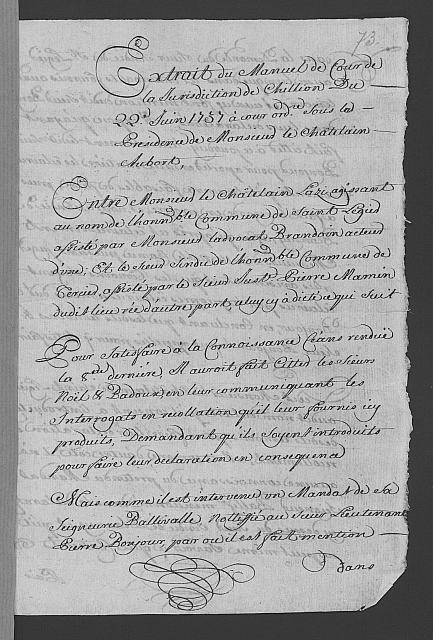 73.
Extrait du Manuel de Cour de
la Jurisdiction de Chillion Du
22.e Juin 1757 à cour ord.re Sous la
Presidence de Monsieur le Châtelain
Aubort,
Entre Monsieur le Châtelain agissant
au nom de l'honn.ble Commune de Saint Legié
assisté par Monsieur l'advocat Brandoin acteur
d'une, Et le Sieur Sindic de l'honn.ble Commune de
assisté par le Sieur Just.r Pierre Mamin
dudit lieu rée d'autre part, a luy cy à dicté a qui suit
Pour Satisfaire à la Connoissance Ceans rendüe
la 8.ne derniere Il auroit fait Citter les Sieurs
Noël & Badoux, en leur communiquant les
Interrogats en recollation qu'il leur fournis icy
produits, Demandant qu'ils soyent introduits
pour faire leur déclaration en consequence
Mais comme il est intervenu un Mandat de Sa
Seigneurie Ballivalle Nottiffié au Sieur Lieutenant
Pierre Bonjour par ou il est fait mention
dans